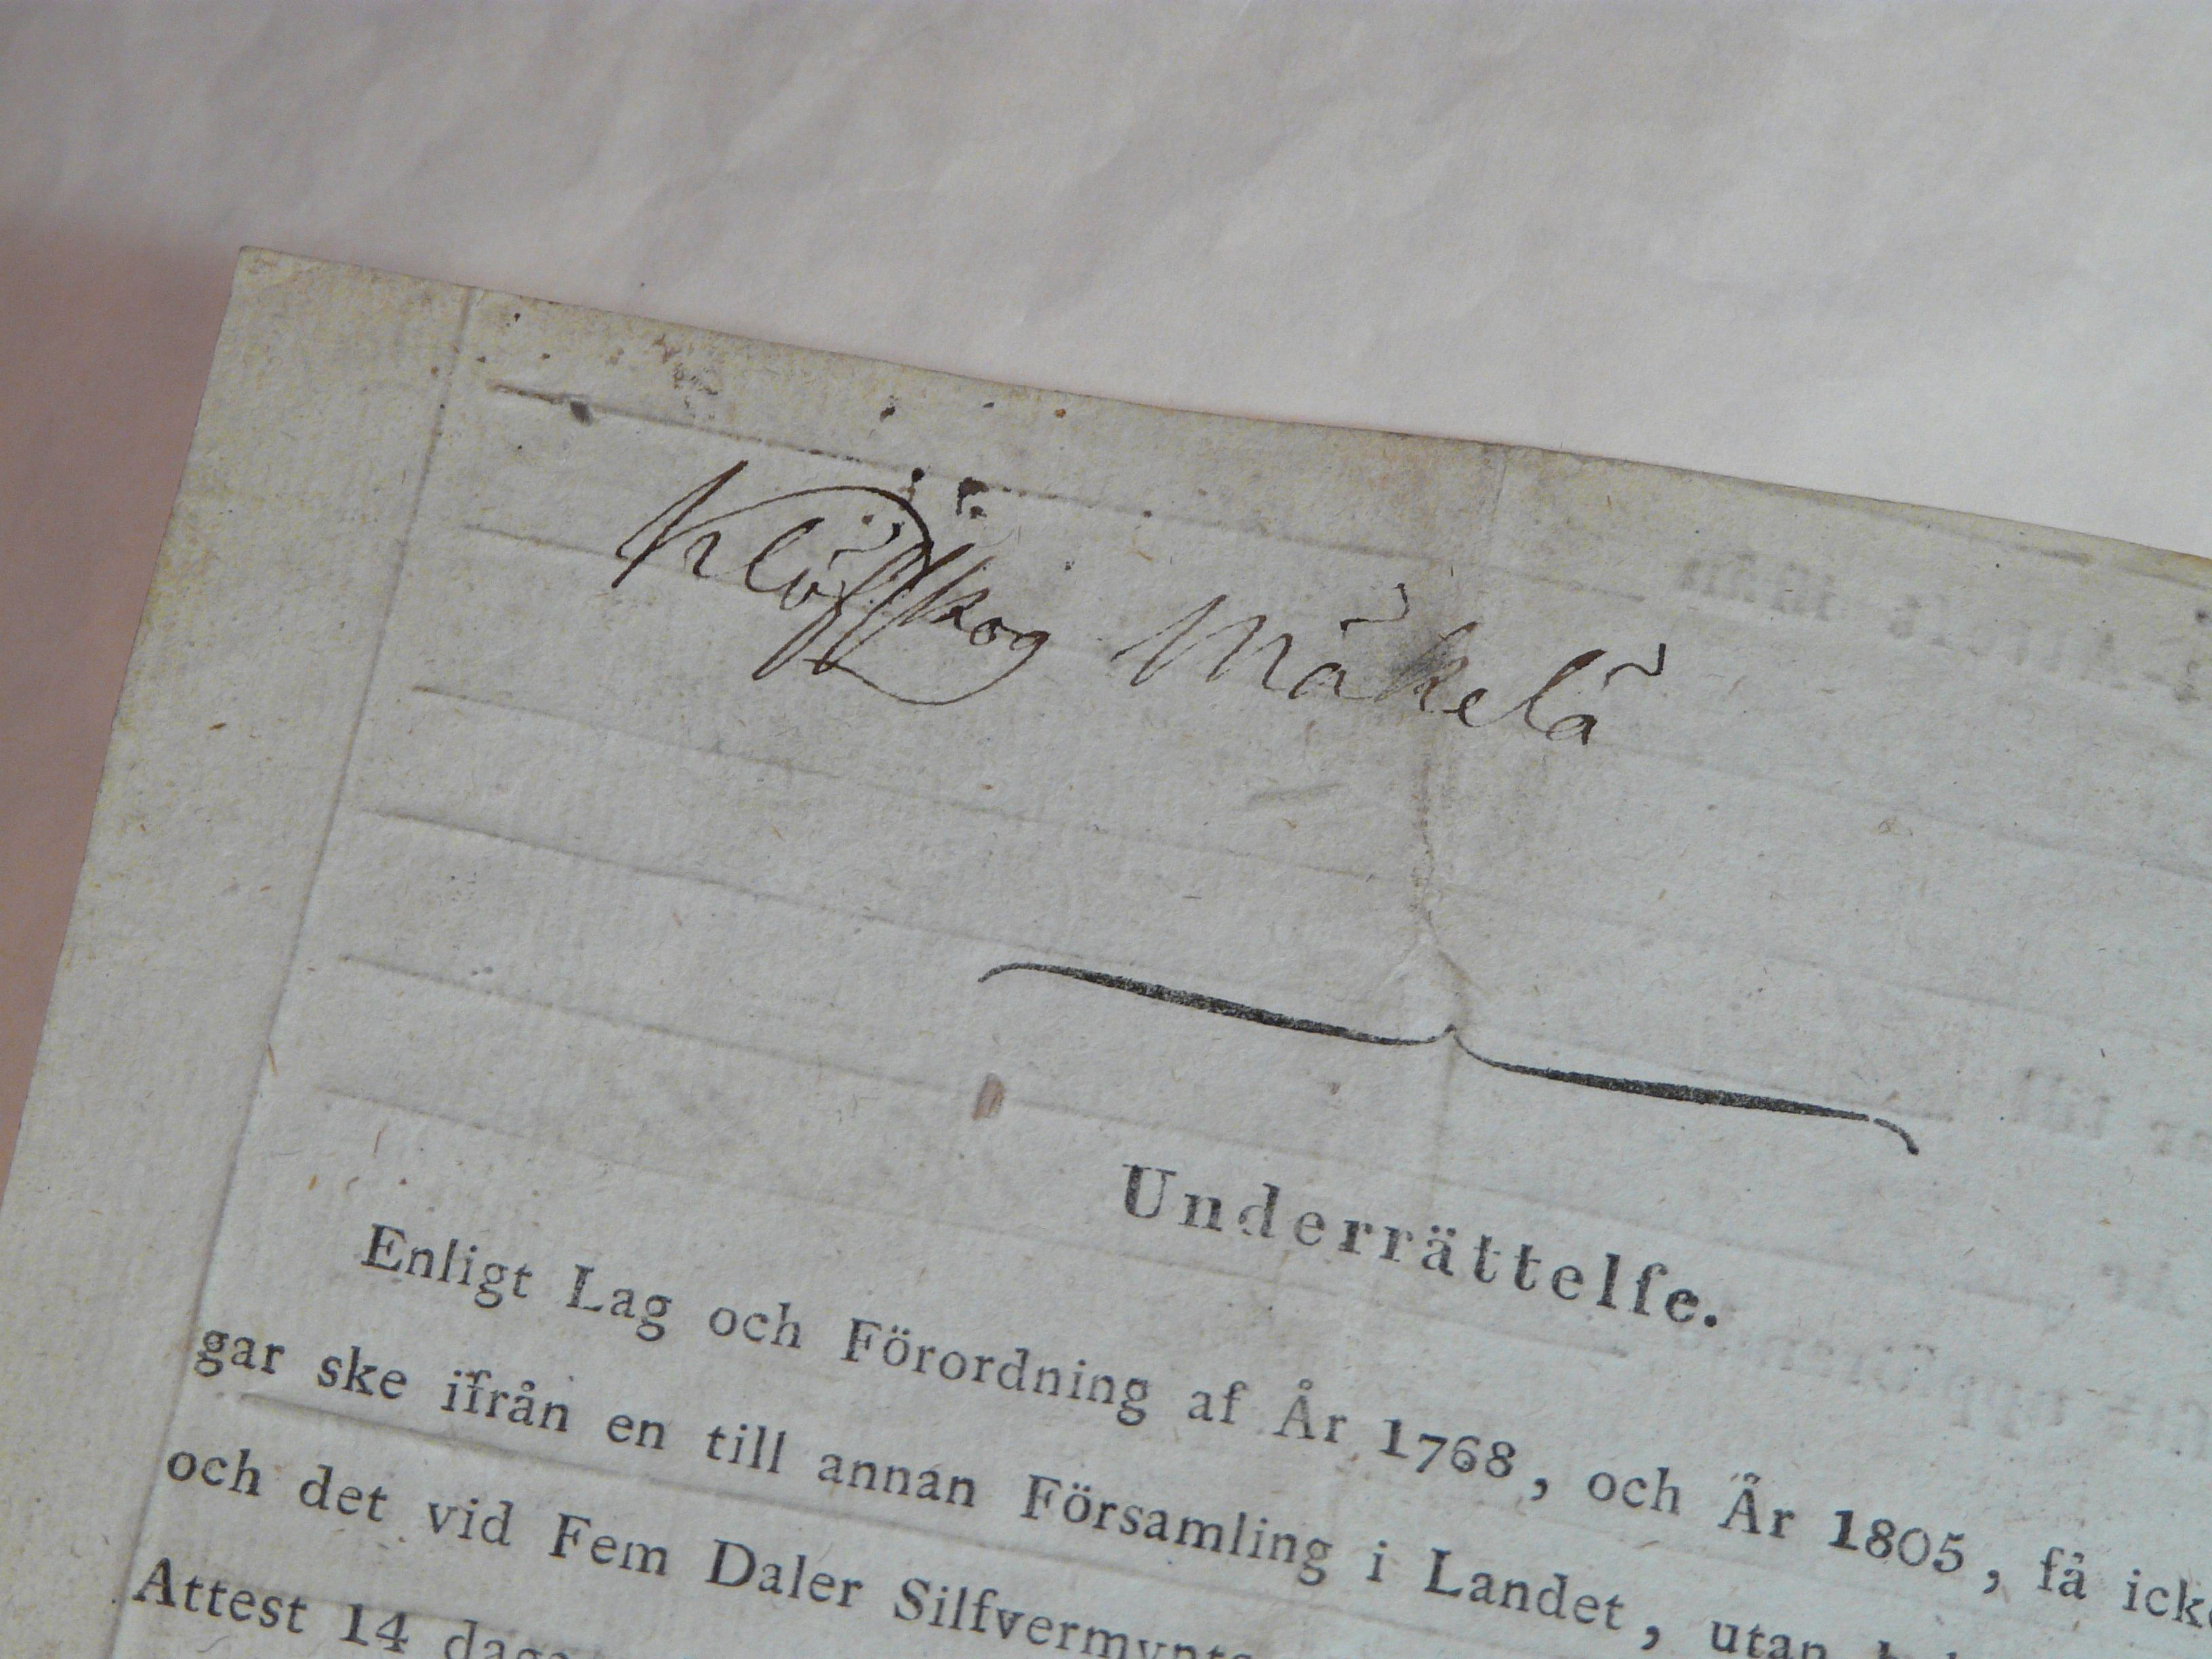 Klöfskog Mäkelä
Underrättelſe.
Enligt Lag och Förordning af År 1768, och År 1805, få icke
gar ske ifrån en till annan Församling i Landet, utan
och det vid Fem Daler Silfvermynts
Attest 14 daga